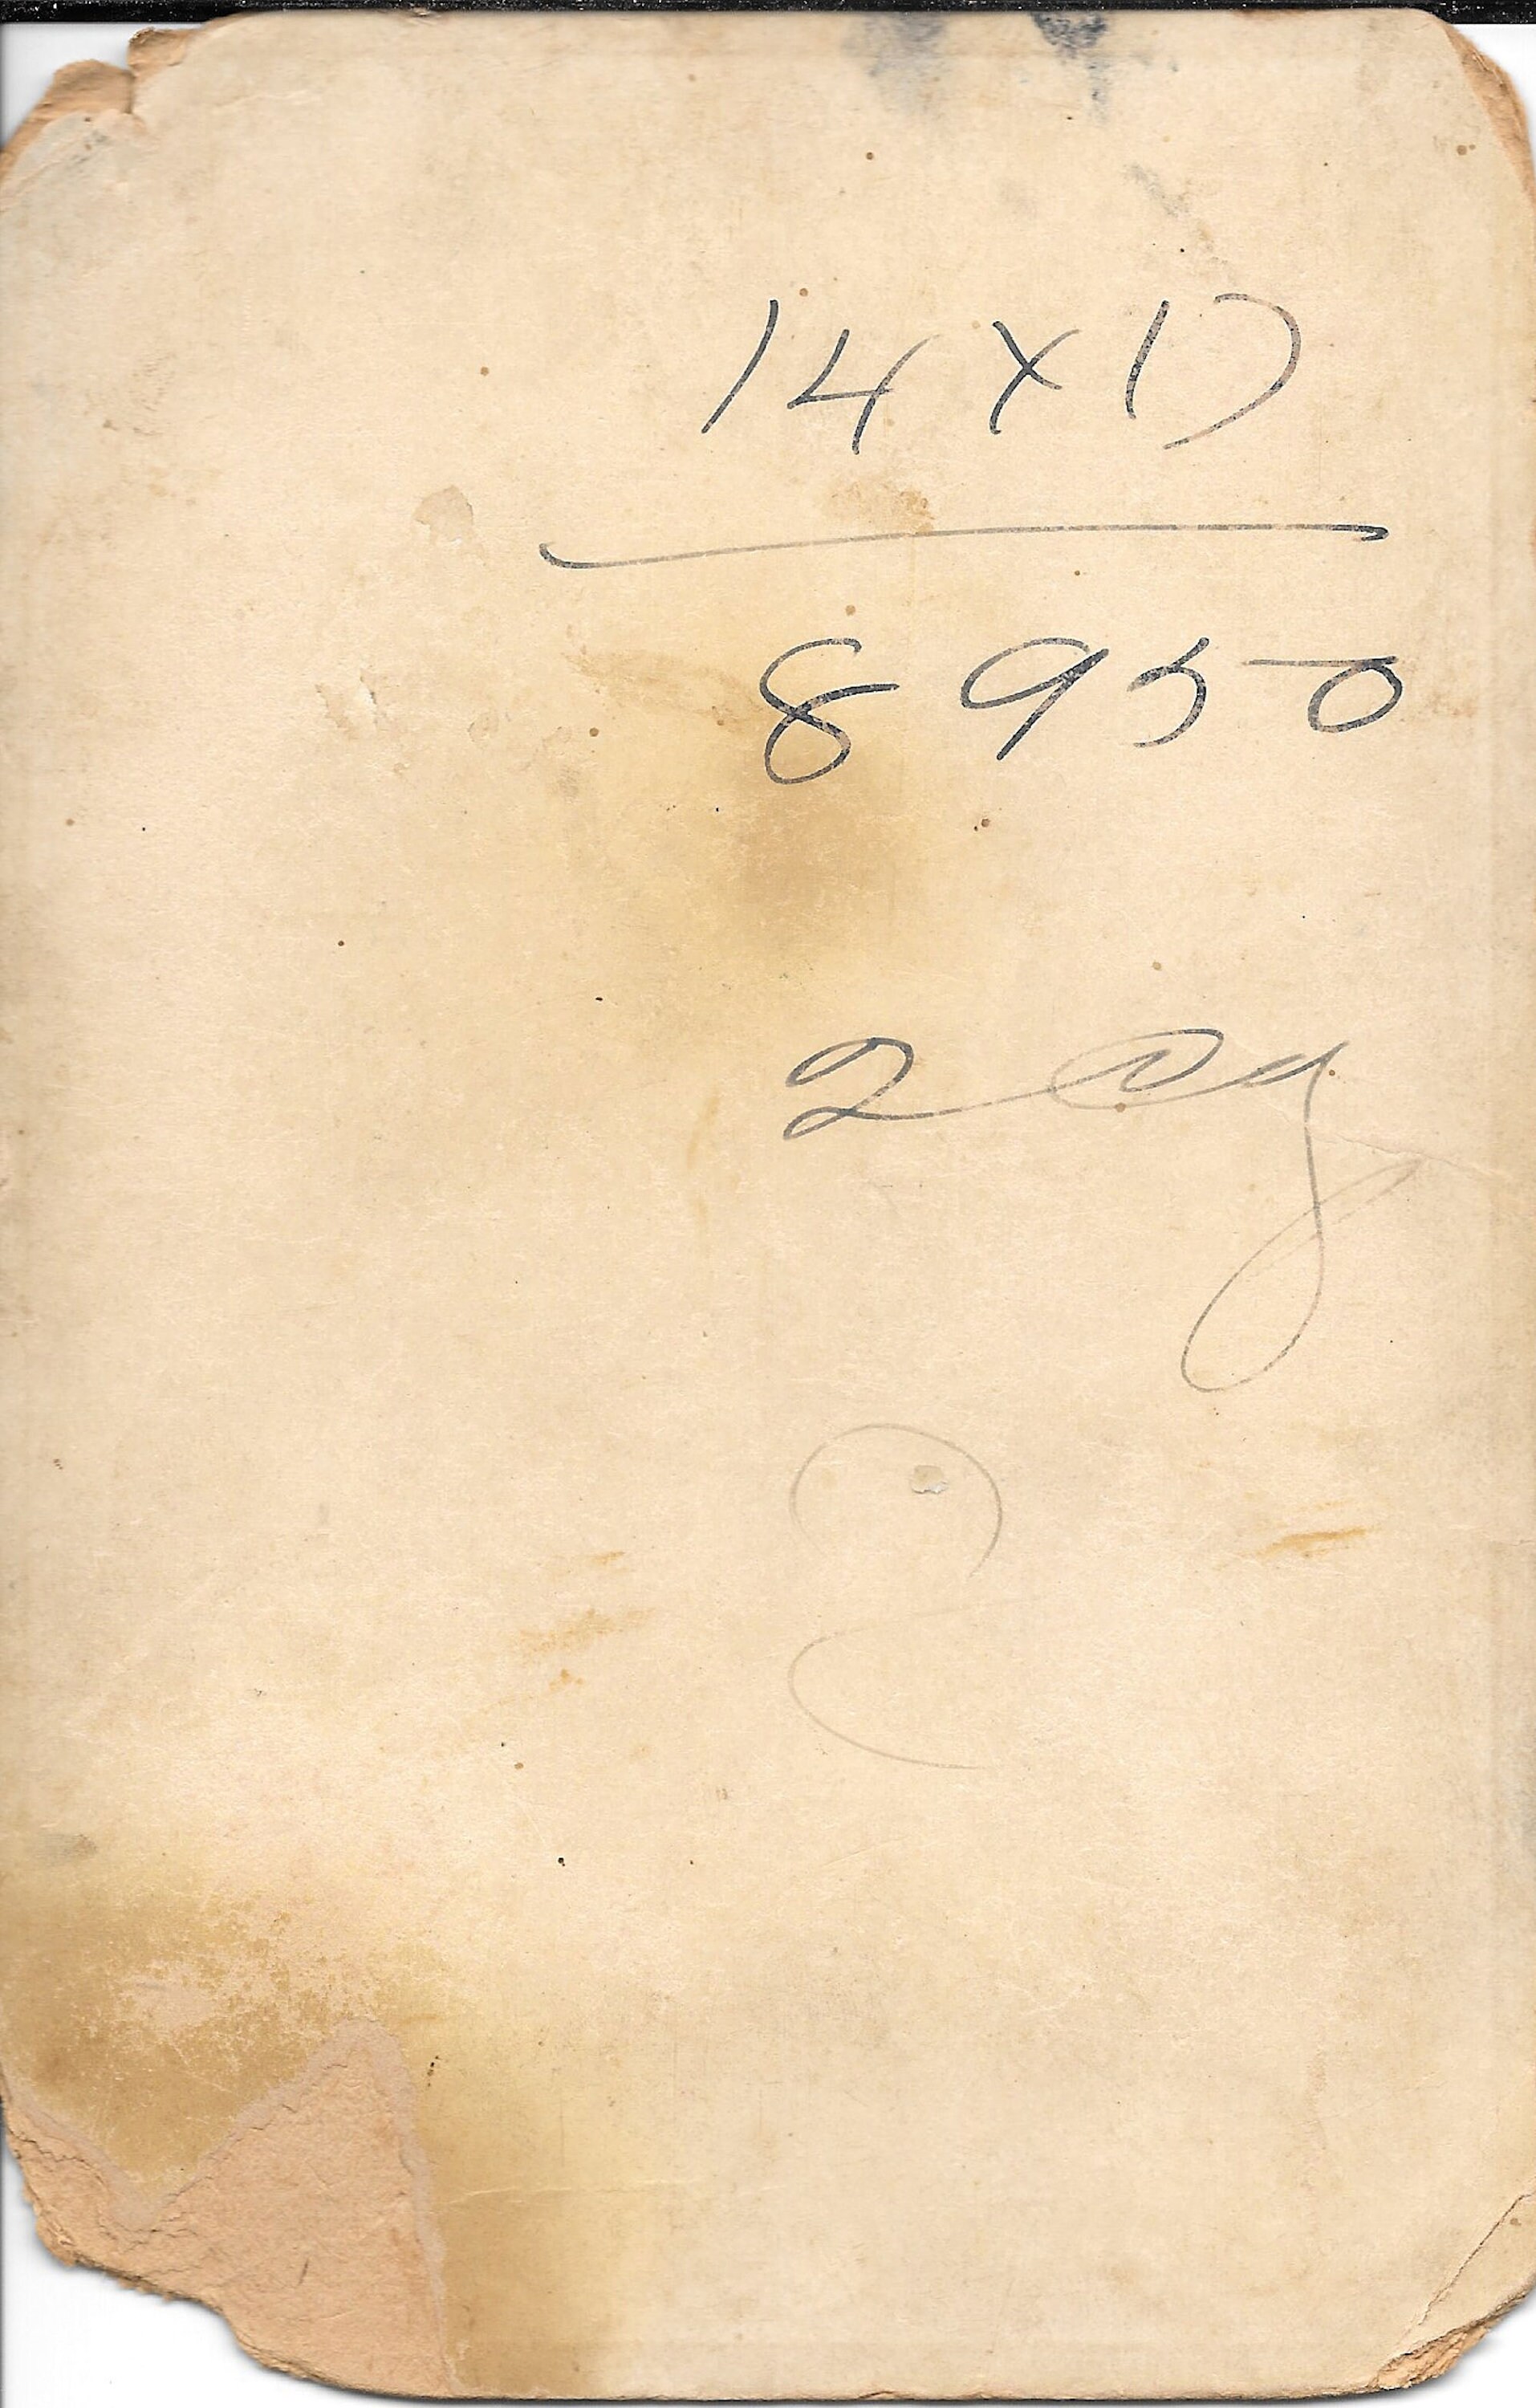 14 x 17
8950
2
2